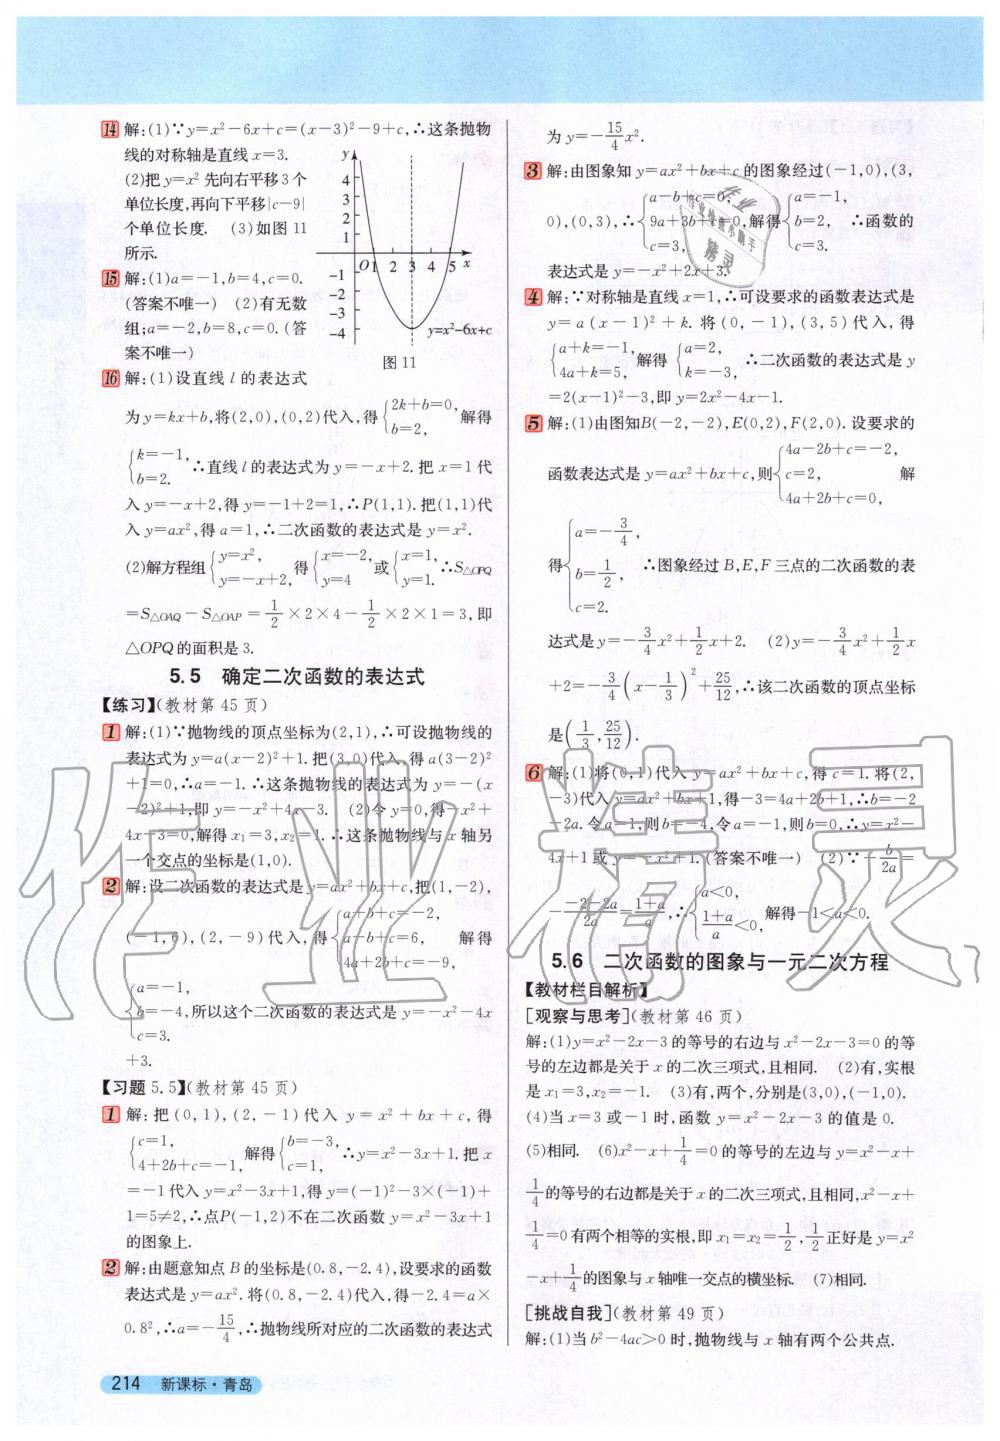 14 解:(1)∵y=x²-6x+c=(x-3)²-9+c,∴这条抛物
线的对称轴是直线 x=3.
(2)把y=x² 先向右平移3个
单位长度,再向下平移|c-9|
个单位长度. (3)如图 11
所示.
y
4
3
2
1
O 1 2 3 4 5 x
-1
-2
-3
-4
y=x²-6x+c
图 11
15 解:(1)a=-1,b=4,c=0.
(答案不唯一) (2)有无数
组;a=-2,b=8,c=0.(答
案不唯一)
16 解:(1)设直线 l 的表达式
为y=kx+b,将(2,0),(0,2)代入,得{2k+b=0, b=2, 解得
{k=-1, b=2. ∴直线 l 的表达式为 y=-x+2. 把 x=1 代
入 y=-x+2,得 y=-1+2=1,∴P(1,1). 把(1,1)代
入y=ax²,得 a=1,∴二次函数的表达式是 y=x².
(2)解方程组{y=x², y=-x+2, 得{x=-2, y=4 或{x=1, y=1. ∴S△OPQ
=S△OAQ-S△OAP=1/2×2×4-1/2×2×1=3,即
△OPQ的面积是3.
5.5 确定二次函数的表达式
【练习】(教材第 45 页)
1 解:(1)∵抛物线的顶点坐标为(2,1),∴可设抛物线的
表达式为 y=a(x-2)²+1. 把(3,0)代入,得 a(3-2)²
+1=0,∴a=-1. ∴这条抛物线的表达式为 y=-(x
-2)²+1,即 y=-x²+4x-3. (2)令 y=0,得-x²+
4x-3=0,解得 x₁=3,x₂=1. ∴这条抛物线与 x 轴另
一个交点的坐标是(1,0).
2 解:设二次函数的表达式是 y=ax²+bx+c,把(1,-2),
(-1,6),(2,-9)代入,得{a+b+c=-2, a-b+c=6, 4a+2b+c=-9, 解得
{a=-1, b=-4, c=3. 所以这个二次函数的表达式是 y=-x²-4x
+3.
【习题 5.5】(教材第 45 页)
1 解:把(0,1),(2,-1)代入 y=x²+bx+c,得
{c=1, 4+2b+c=-1, 解得{b=-3, c=1, ∴y=x²-3x+1. 把 x
=-1代入 y=x²-3x+1,得 y=(-1)²-3×(-1)+
1=5≠2,∴点P(-1,2)不在二次函数 y=x²-3x+1
的图象上.
2 解:由题意知点 B 的坐标是(0.8,-2.4),设要求的函数
表达式是 y=ax². 将(0.8,-2.4)代入,得-2.4=a×
0.8²,∴a=-15/4,∴抛物线所对应的二次函数的表达式
214 新课标·青岛
为 y=-15/4x².
3 解:由图象知 y=ax²+bx+c 的图象经过(-1,0),(3,
0),(0,3),∴{a-b+c=0, 9a+3b+c=0, c=3, 解得{a=-1, b=2, c=3. ∴函数的
表达式是 y=-x²+2x+3.
4 解:∵对称轴是直线 x=1,∴可设要求的函数表达式是
y=a(x-1)²+k. 将(0,-1),(3,5)代入,得
{a+k=-1, 4a+k=5, 解得{a=2, k=-3, ∴二次函数的表达式是 y
=2(x-1)²-3,即 y=2x²-4x-1.
5 解:(1)由图知B(-2,-2),E(0,2),F(2,0). 设要求的
函数表达式是 y=ax²+bx+c,则{4a-2b+c=-2, c=2, 4a+2b+c=0, 解
得{a=-3/4, b=1/2, c=2. ∴图象经过 B,E,F 三点的二次函数的表
达式是 y=-3/4x²+1/2x+2. (2)y=-3/4x²+1/2x
+2=-3/4(x-1/3)²+25/12,∴该二次函数的顶点坐标
是(1/3,25/12).
6 解:(1)将(0,1)代入 y=ax²+bx+c,得 c=1. 将(2,
-3)代入 y=ax²+bx+1,得-3=4a+2b+1,∴b=-2
-2a. 令a=1,则b=-4,令a=-1,则b=0,∴y=x²-
4x+1 或 y=-x²+1.(答案不唯一) (2)∵-b/2a=
--2-2a/2a=1+a/a,∴{a<0, 1+a/a<0, 解得-1<a<0.
5.6 二次函数的图象与一元二次方程
【教材栏目解析】
[观察与思考](教材第 46 页)
解:(1)y=x²-2x-3 的等号的右边与 x²-2x-3=0 的等
号的左边都是关于 x 的二次三项式,且相同. (2)有,实根
是 x₁=3,x₂=-1. (3)有,两个,分别是(3,0),(-1,0).
(4)当 x=3 或-1 时,函数 y=x²-2x-3 的值是 0.
(5)相同. (6)x²-x+1/4=0 的等号的左边与 y=x²-x+
1/4的等号的右边都是关于 x 的二次三项式,且相同,x²-x+
1/4=0 有两个相等的实根,即 x₁=x₂=1/2,1/2正好是 y=x²
-x+1/4的图象与 x 轴唯一交点的横坐标. (7)相同.
[挑战自我](教材第 49 页)
解:(1)当 b²-4ac>0 时,抛物线与 x 轴有两个公共点.
作业精灵